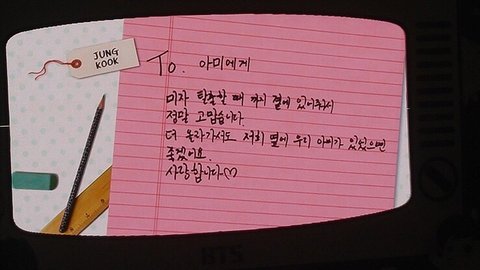 JUNG
KOOK
To. 아미에게
미자 탈출할 때 까지 곁에 있어주셔서
정말 고맙습니다.
더 올라가서도 저희 옆에 우리 아미가 있었으면
좋겠어요.
사랑합니다♡
BTS